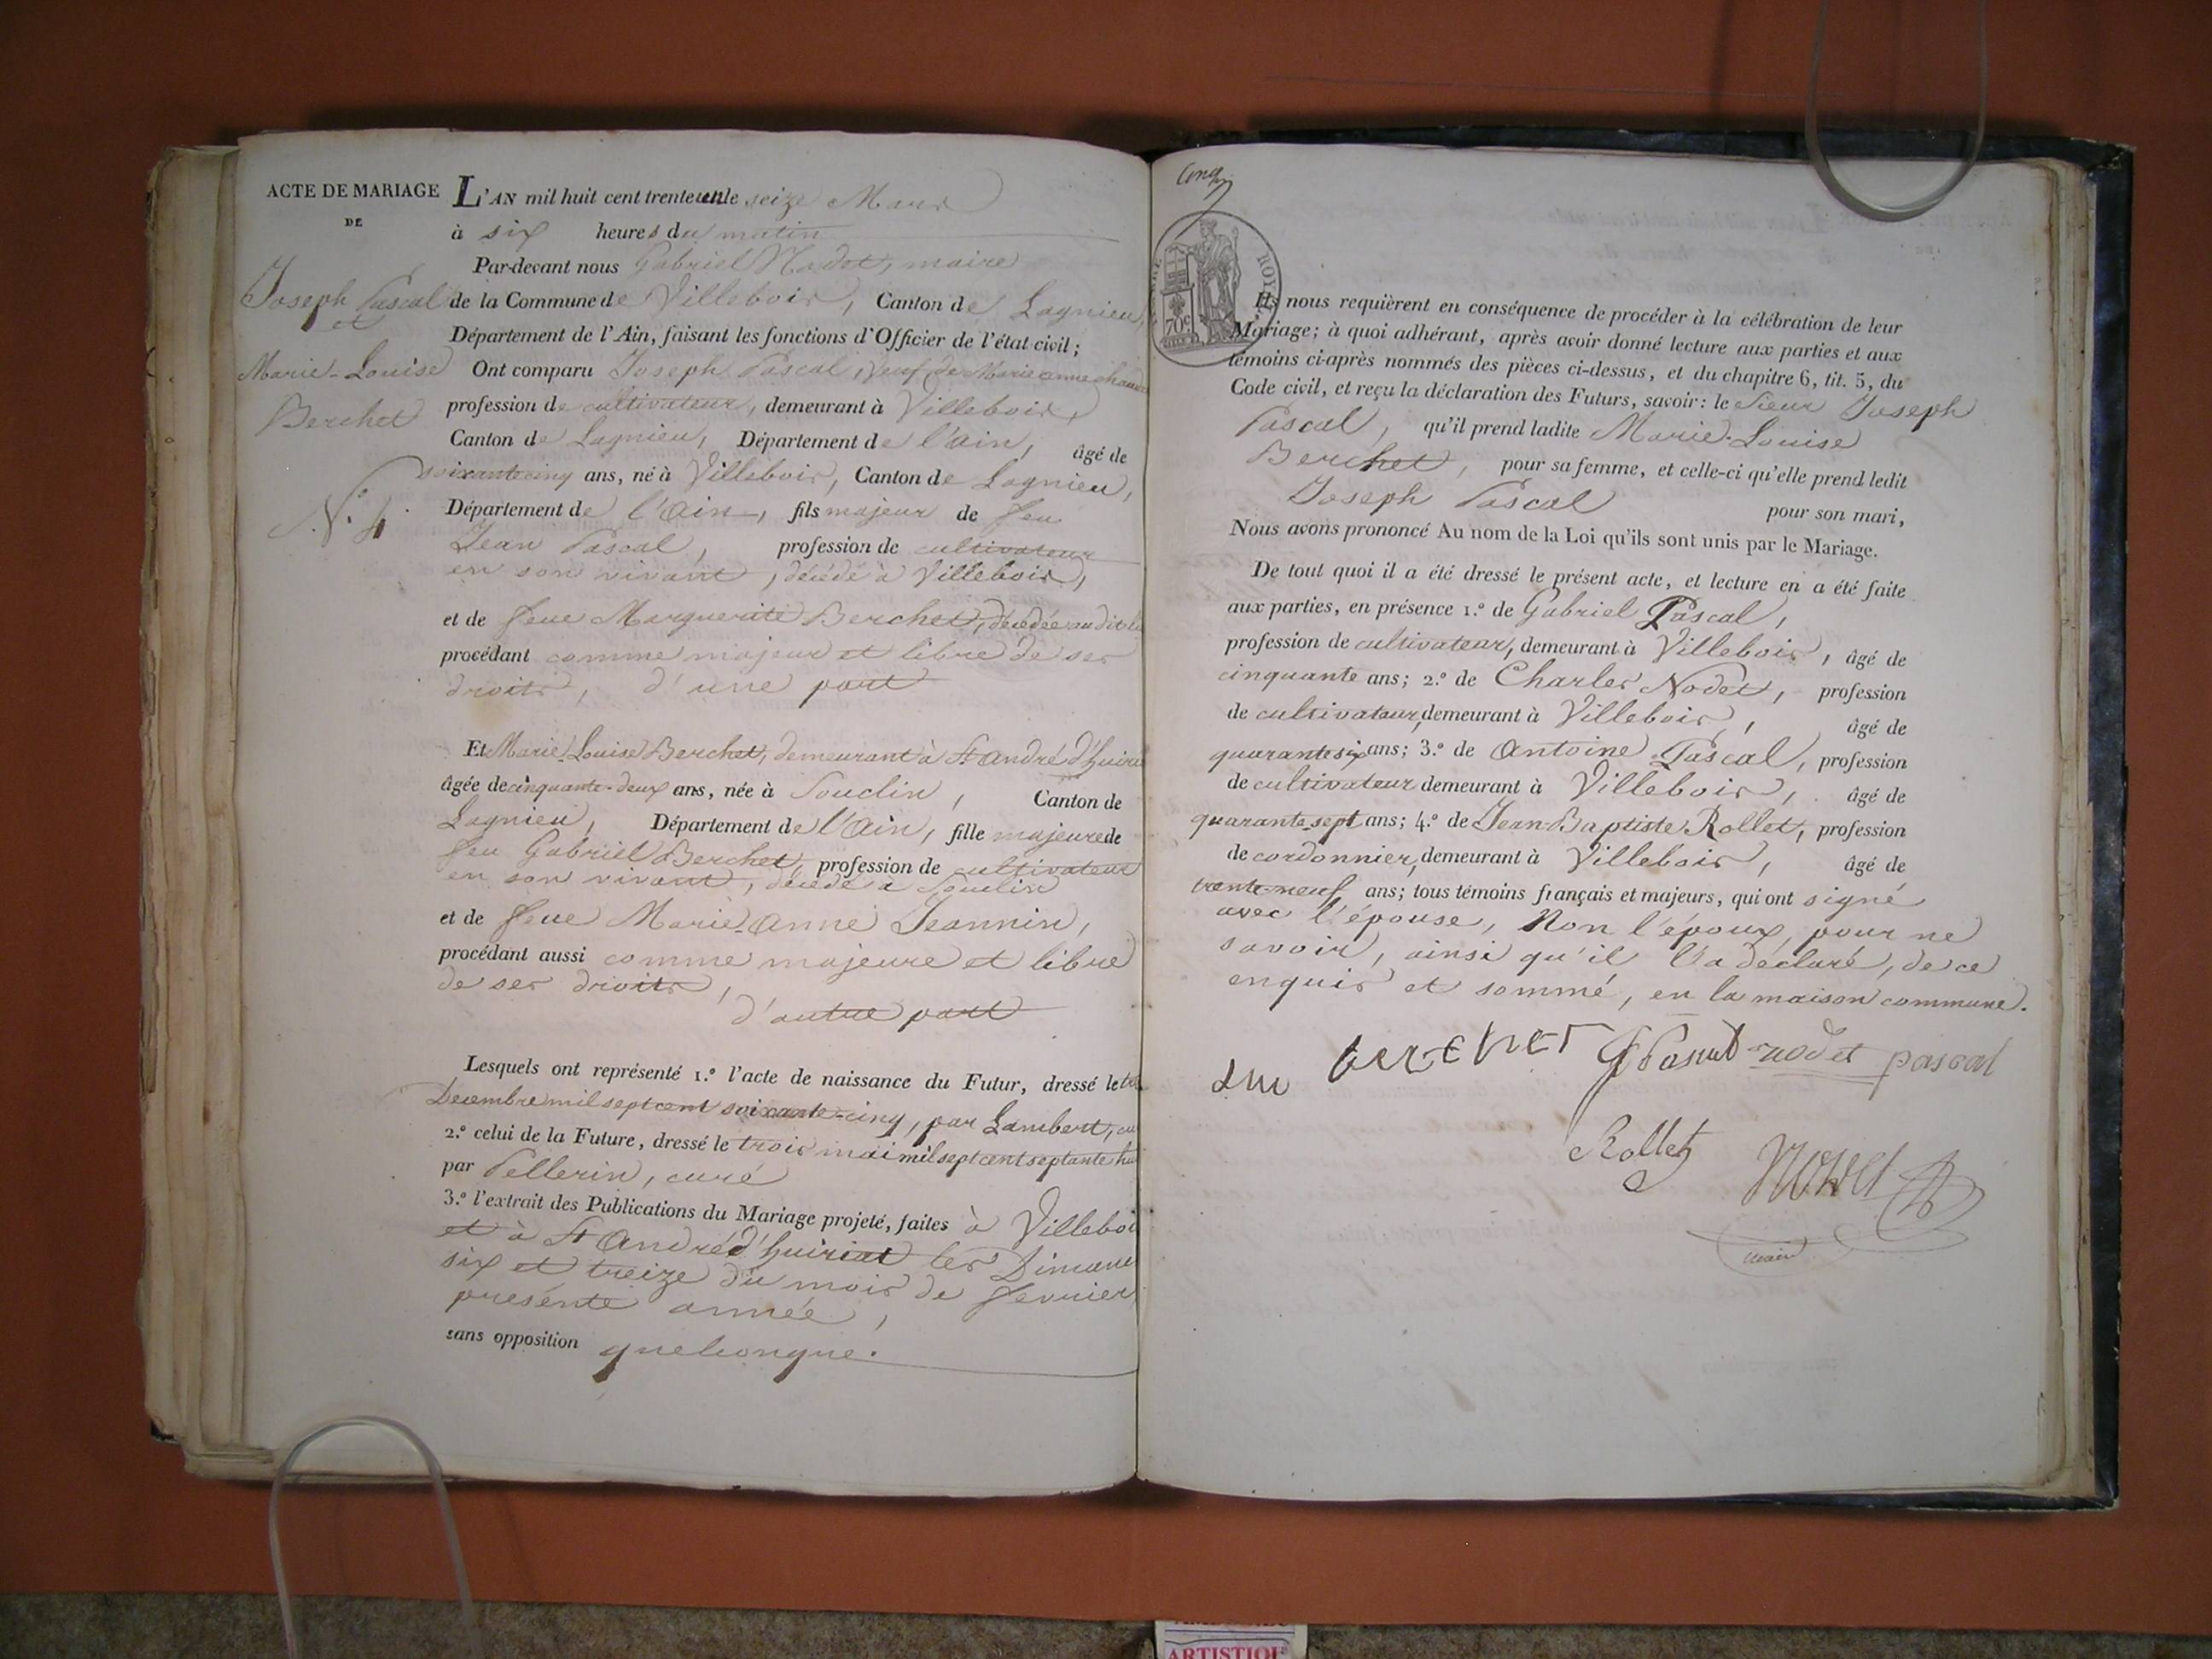 ACTE DE MARIAGE
DE
Joseph Pascal
et
Marie-Louise
Berchet
N.° 4.
L'AN mil huit cent trente un le seize Mars
à six heures du matin
Par-devant nous Gabriel Nodet, maire
de la Commune de Villebois, Canton de Lagnieu,
Département de l'Ain, faisant les fonctions d'Officier de l'état civil;
Ont comparu Joseph Pascal, veuf de Marie anne
profession de cultivateur, demeurant à Villebois,
Canton de Lagnieu, Département de l'Ain, âgé de
soixante cinq ans, né à Villebois, Canton de Lagnieu,
Département de l'Ain, fils majeur de feu
Jean Pascal, profession de cultivateur
en son vivant, décédé à Villebois,
et de feue Marguerite Berchet, décédée au dit
procédant comme majeur et libre de ses
droits, d'une part
Et Marie-Louise Berchet, demeurant à St André d'huiri
âgée de cinquante-deux ans, née à Souclin, Canton de
Lagnieu, Département de l'Ain, fille majeure de
feu Gabriel Berchet, profession de cultivateur
en son vivant, décédé à Souclin
et de feue Marie-Anne Jeannin,
procédant aussi comme majeure et libre
de ses droits,
d'autre part
Lesquels ont représenté 1.° l'acte de naissance du Futur, dressé le
Decembre mil sept cent soixante-cinq, par Lambert, cu
2.° celui de la Future, dressé le trois mai mil sept cent septante hu
par Pellerin, curé
3.° l'extrait des Publications du Mariage projeté, faites à Villeboi
et à St André d'huiriat les Dimanc
six et treize du mois de fevrier
présente année,
sans opposition quelconque.
Cinq
ROYAL
70c
Ils nous requièrent en conséquence de procéder à la célébration de leur
Mariage; à quoi adhérant, après avoir donné lecture aux parties et aux
témoins ci-après nommés des pièces ci-dessus, et du chapitre 6, tit. 5, du
Code civil, et reçu la déclaration des Futurs, savoir: le Sieur Joseph
Pascal, qu'il prend ladite Marie-Louise
Berchet, pour sa femme, et celle-ci qu'elle prend ledit
Joseph Pascal pour son mari,
Nous avons prononcé Au nom de la Loi qu'ils sont unis par le Mariage.
De tout quoi il a été dressé le présent acte, et lecture en a été faite
aux parties, en présence 1.° de Gabriel Pascal,
profession de cultivateur, demeurant à Villebois, âgé de
cinquante ans; 2.° de Charles Nodet, profession
de cultivateur, demeurant à Villebois, âgé de
quarante six ans; 3.° de Antoine Pascal, profession
de cultivateur demeurant à Villebois, âgé de
quarante sept ans; 4.° de Jean-Baptiste Rollet, profession
de cordonnier, demeurant à Villebois, âgé de
trente-neuf ans; tous témoins français et majeurs, qui ont signé
avec l'épouse, Non l'époux, pour ne
savoir, ainsi qu'il l'a déclaré, de ce
enquis et sommé, en la maison commune.
berchet nodet pascal
Rollet Nodet
maire
ARTISTIQU